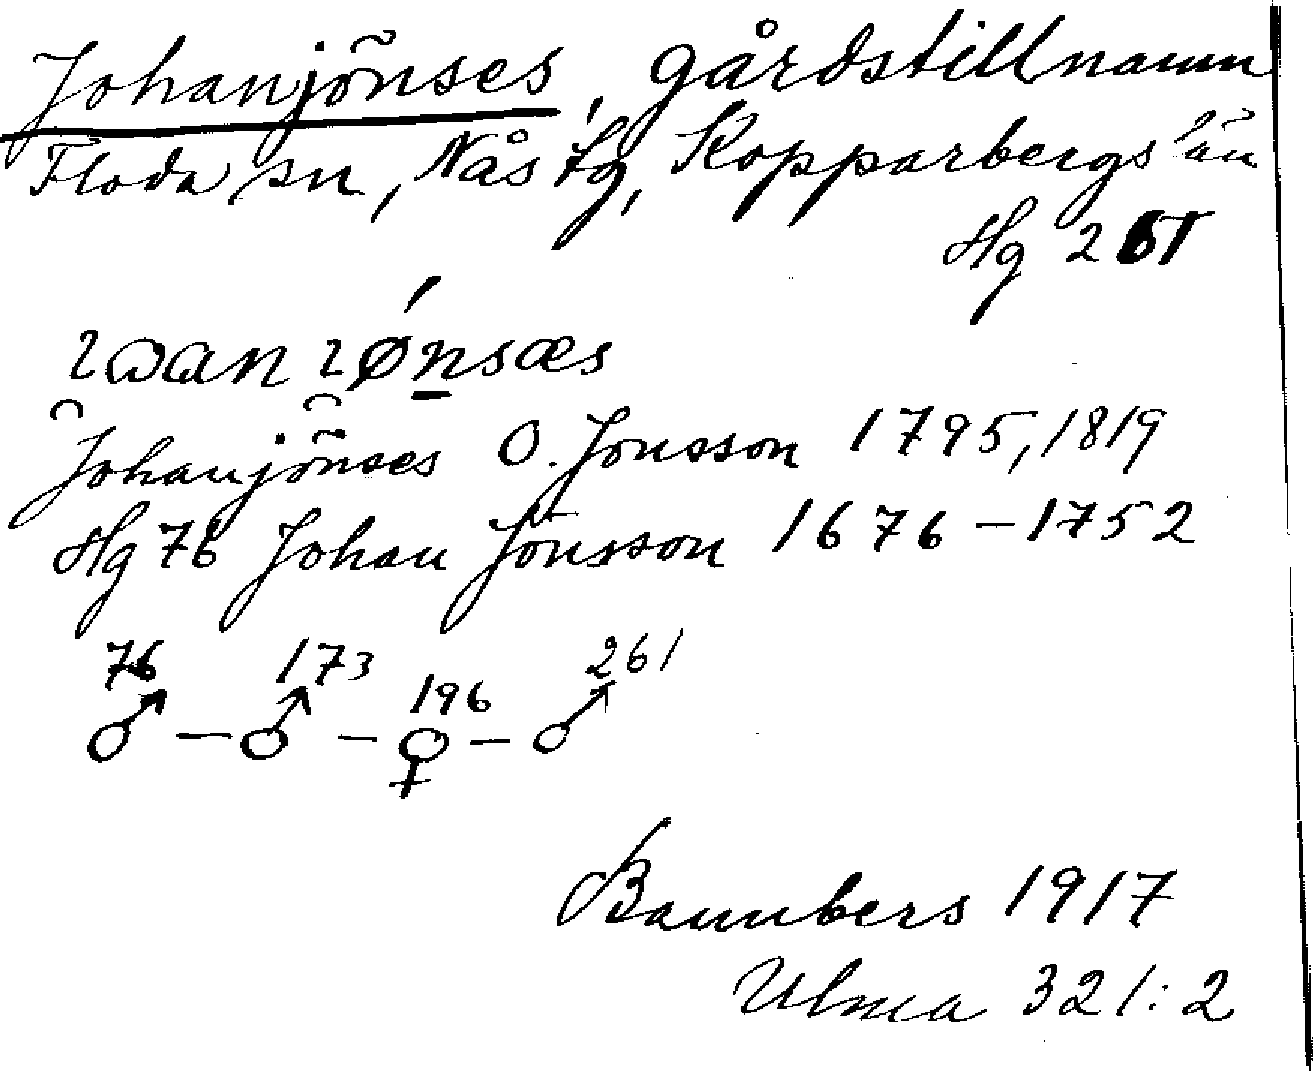 Johanjönses, gårdstillnamn
Floda sn, Nås tg, Kopparbergs län
Hg 261
ɿɷan ɿǿnsæs
Johanjönses O. Jonsson 1795, 1819
Hg 76 Johan Jönsson 1676–1752
76 173 196 261
♂ – ♂ – ♀ – ♂
Bannbers 1917
Ulma 321:2